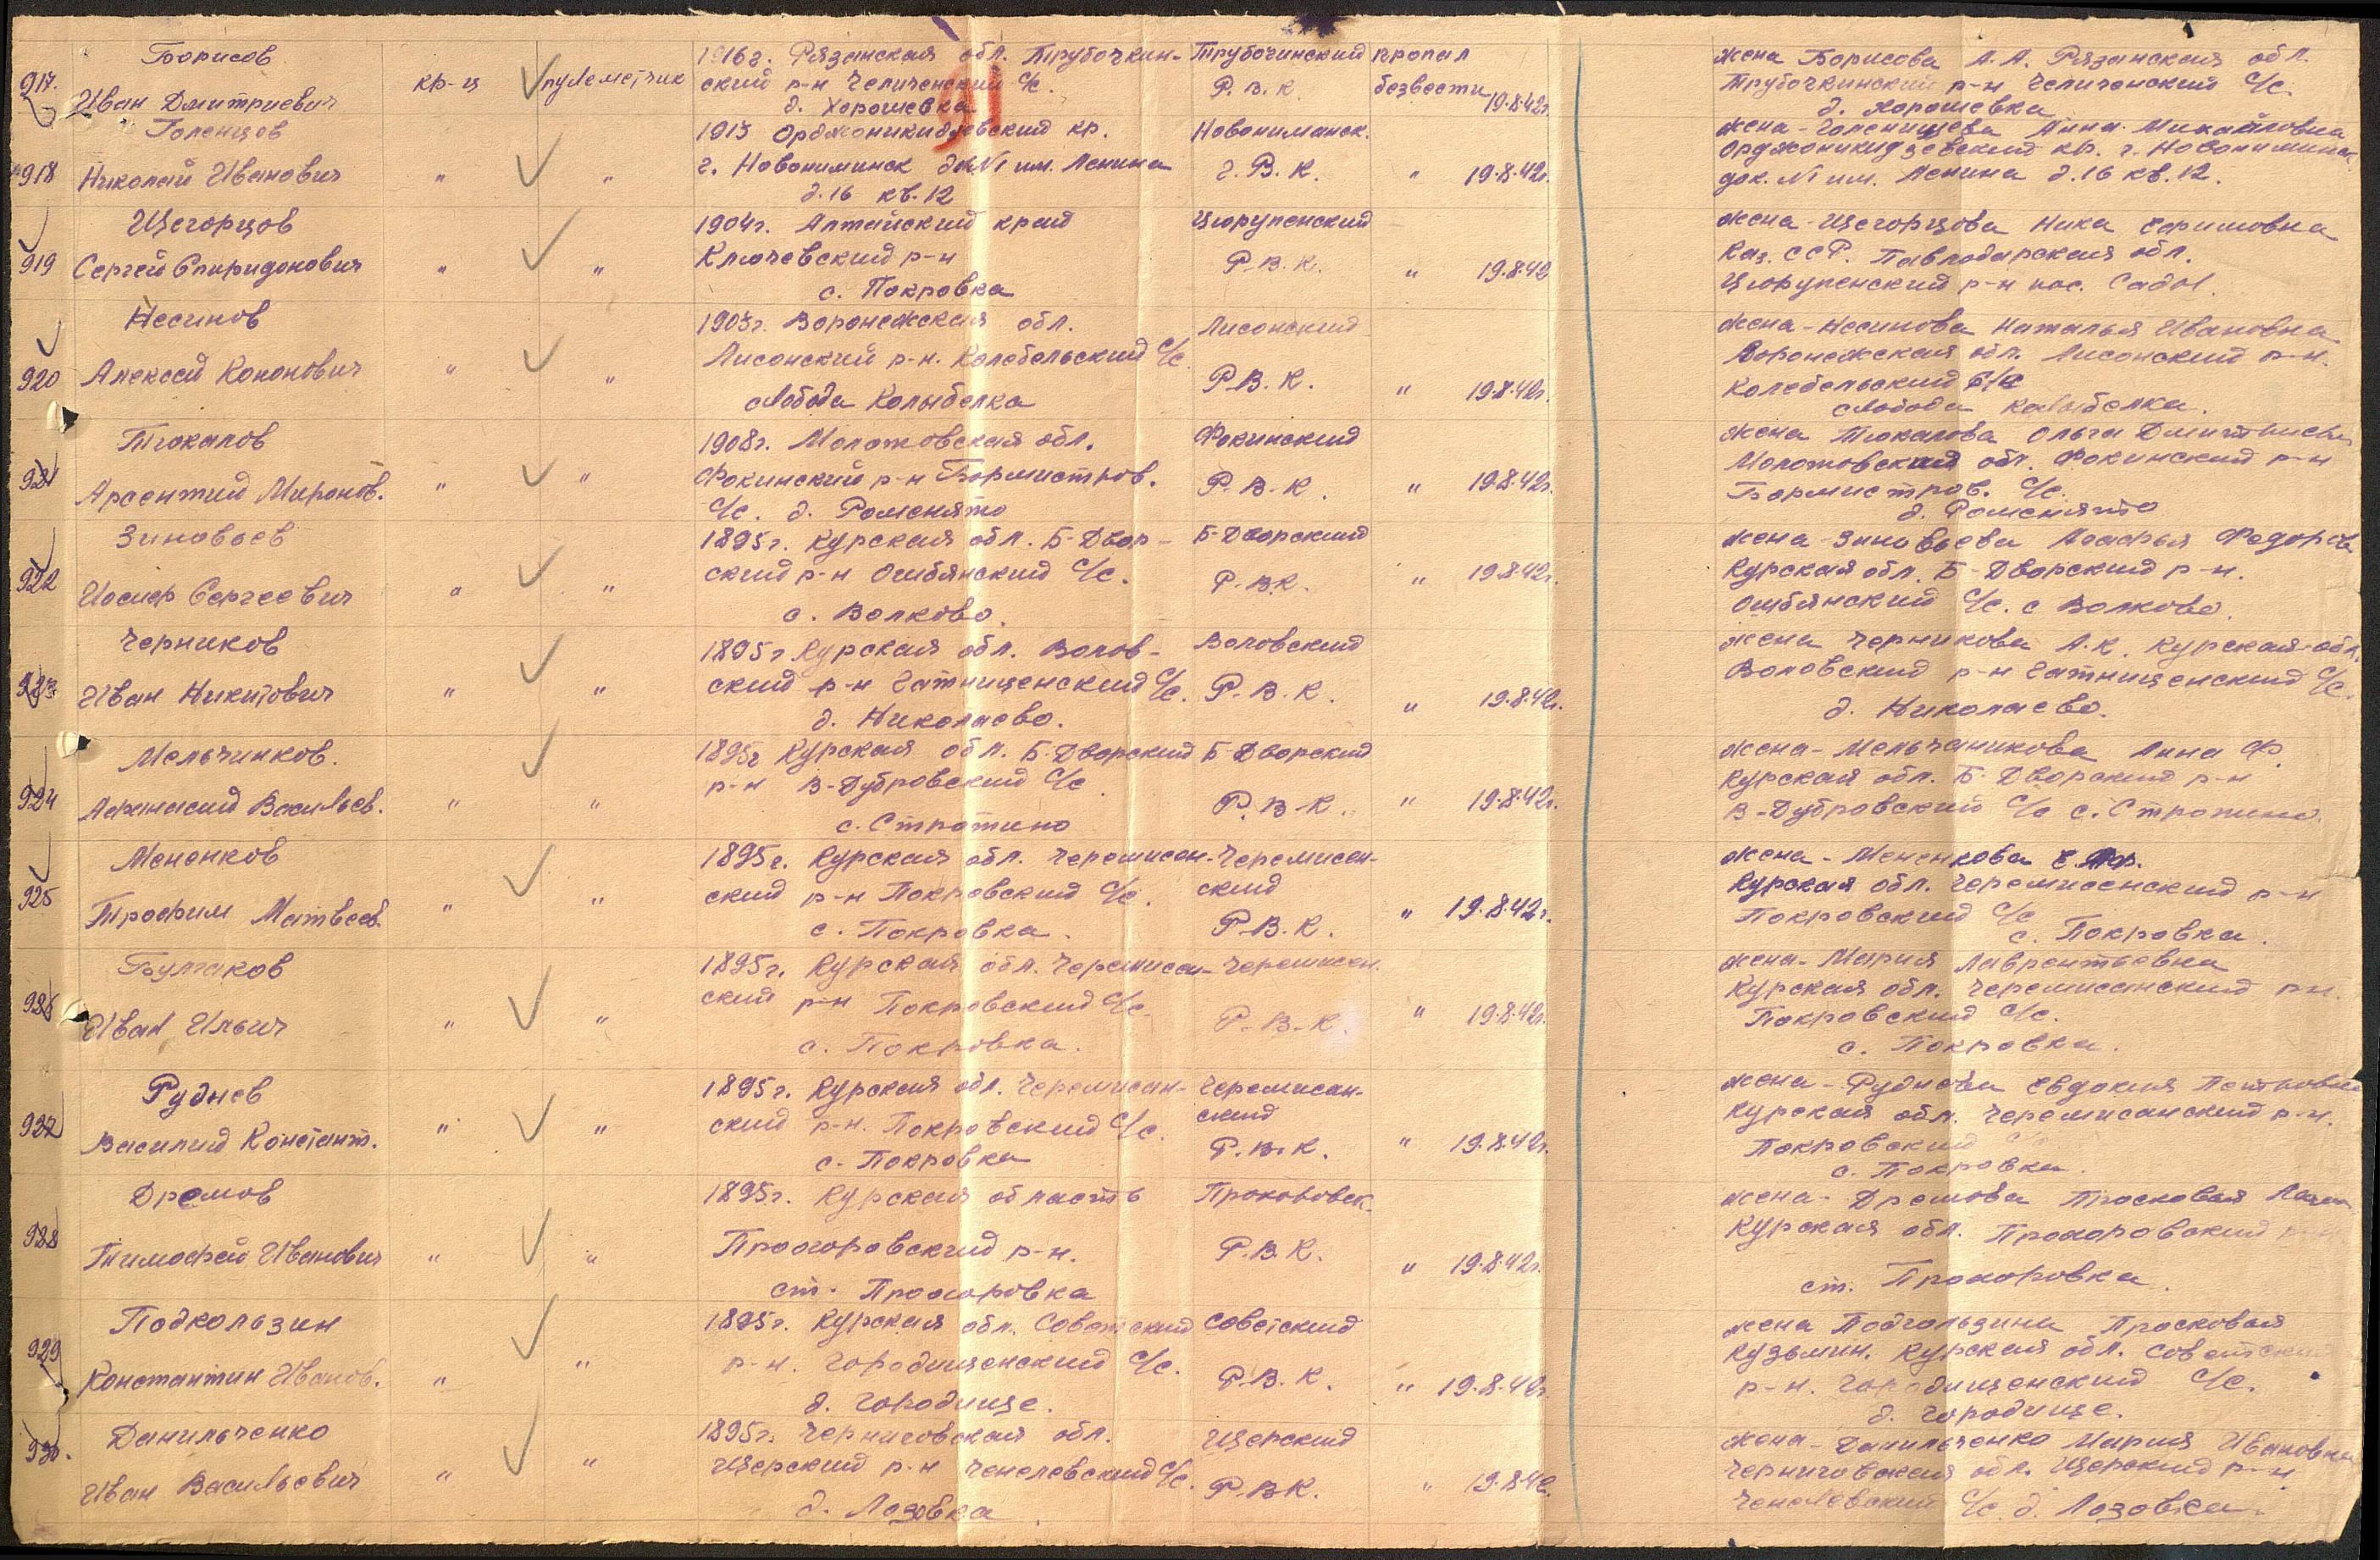 917. Борисов
Иван Дмитриевич
кр-ц
пулеметчик
1916 г. Рязанская обл. Трубочкин-
ский р-н Челиченский С/с.
д. Хорошевка
Трубочинский
Р.В.К.
пропал
безвести 19.8.42г.
жена Борисова А.А. Рязанская обл.
Трубочкинский р-н Челиченский С/с.
д. Хорошевка
918 Голенцов
Николай Иванович
" "
1913 Орджоникидзевский кр.
г. Новониминск док №1 им. Ленина
д.16 кв.12
Новониманск.
Г.В.К.
" 19.8.42г.
жена - Голенищева Анна Михайловна
Орджоникидзевский кр. г. Новониминск
док. №1 им. Ленина д.16 кв.12.
919 Щегорцов
Сергей Спиридонович
" "
1904г. Алтайский край
Ключевский р-н
с. Покровка
Цюрупенский
Р.В.К.
" 19.8.42
жена - Щегорцова Ника Ефимовна
Каз. ССР. Павлодарская обл.
Цюрупенский р-н пос. Садо1.
920 Несинов
Алексей Кононович
" "
1903г. Воронежская обл.
Лисонский р-н. Колебельский С/с.
слобода Колыбелка
Лисонский
Р.В.К.
" 19.8.42г.
жена - Несинова Наталья Ивановна
Воронежская обл. Лисонский р-н.
Колебельский С/с
слобода Колыбелка.
921 Тюкалов
Арсентий Миронов.
" "
1908г. Молотовская обл.
Фокинский р-н Бормистров.
С/с. д. Роменято
Фокинский
Р.В.К.
" 19.8.42г.
жена Тюкалова Ольга Дмитриевн
Молотовская обл. Фокинский р-н
Бормистров. С/с.
д. Роменято
922 Зиновьев
Иосиф Сергеевич
" "
1895г. Курская обл. Б-Двор-
ский р-н Ошбянский С/с.
с. Волково.
Б-Дворский
Р.В.К.
" 19.8.42г.
жена - Зиновьева Агафья Федоров
Курская обл. Б-Дворский р-н.
Ошбянский С/с. с Волково.
923 Черников
Иван Никитович
" "
1895г Курская обл. Волов-
ский р-н Гатнищенский С/с.
д. Николаево.
Воловский
Р.В.К.
" 19.8.42г.
жена Черникова А.К. Курская обл.
Воловский р-н Гатнищенский С/с.
д. Николаево.
924 Мельчинков.
Афанасий Васильев.
" "
1895г Курская обл. Б-Дворский
р-н В-Дубровский С/с
с. Стротино
Б-Дворский
Р.В.К.
" 19.8.42г.
жена - Мельчаникова Анна Ф.
Курская обл. Б-Дворский р-н
В-Дубровский С/с с. Стротино.
925 Мененков
Трофим Матвеев.
" "
1895г. Курская обл. Черемисен-
ский р-н Покровский С/с.
с. Покровка.
Черемисен-
ский
Р.В.К.
" 19.8.42г.
жена - Мененкова Е.
Курская обл. Черемисенский р-н
Покровский С/с
с. Покровка.
926 Булгаков
Иван Ильич
" "
1895г. Курская обл. Черемисен-
ский р-н Покровский С/с.
с. Покровка.
Черемисен.
Р.В.К.
" 19.8.42г.
жена - Мария Лаврентьевна
Курская обл. Черемисанский р-н.
Покровский С/с.
с. Покровка.
927 Руднев
Василий Констант.
" "
1895г. Курская обл. Черемисан-
ский р-н. Покровский С/с.
с. Покровка
Черемисан-
ский
Р.В.К.
" 19.8.42г.
жена - Руднева Евдокия Петровна
Курская обл. Черемисанский р-н.
Покровский С/с
с. Покровка.
928 Дремов
Тимофей Иванович
" "
1895г. Курская область
Прохоровский р-н.
ст. Прохоровка
Прохововск.
Р.В.К.
" 19.8.42г.
жена - Дремова Просковья
Курская обл. Прохоровский р-н
ст. Прохоровка.
929 Подкользин
Константин Иванов.
" "
1895г. Курская обл. Советский
р-н. Городищенский С/с.
д. Городище.
Советский
Р.В.К.
" 19.8.42г.
жена Подгользина Просковья
Кузьмин. Курская обл. Советский
р-н. Городищенский С/с.
д. Городище.
930. Данильченко
Иван Васильевич
" "
1895г. Черниговская обл.
Щерский р-н Ченелевский С/с.
д. Лозовка.
Щерский
Р.В.К.
" 19.8.42.
жена - Данильченко Мария Ивановна
Черниговская обл. Щерский р-н.
Ченелевский С/с. д. Лозовка.